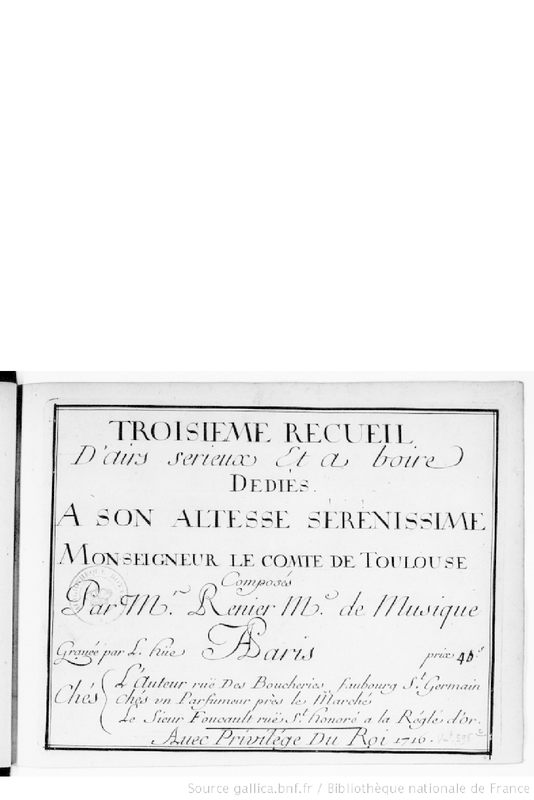 TROISIEME RECUEIL
D'airs serieux Et a boire
DEDIÉS.
A SON ALTESSE SÉRÉNISSIME
MONSEIGNEUR LE COMTE DE TOULOUSE
Composés
Par Mr. Renier Me. de Musique
A Paris
Gravée par L. Hüe
prix 4
Chés
L'Auteur ruë Des Boucheries, faubourg St. Germain
Chés un Parfumeur près le Marché
Le Sieur Foucault ruë St. Honoré a la Régle d'or.
Avec Privilége Du Roi 1716.
Source gallica.bnf.fr / Bibliothèque nationale de France